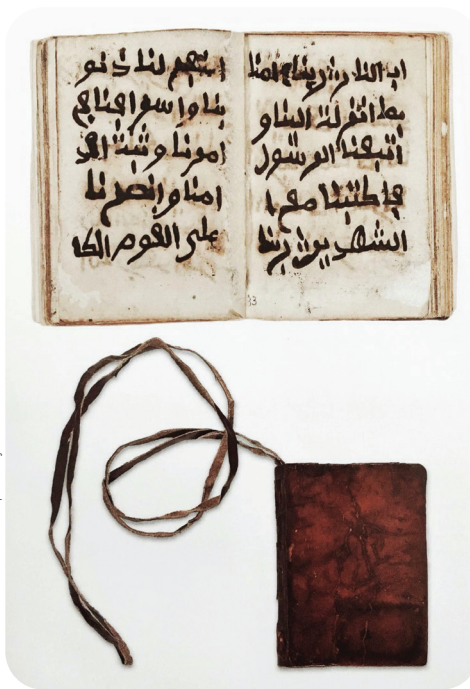 اب النار ربنا امنا
بما انزلت و
اتبعنا الرسول
فاكتبنا مع
الشهدين ربنا
اغفر لنا ذنو
بنا واسرافنا في
امرنا وثبت اقد
امنا وانصرنا
على القوم الكا